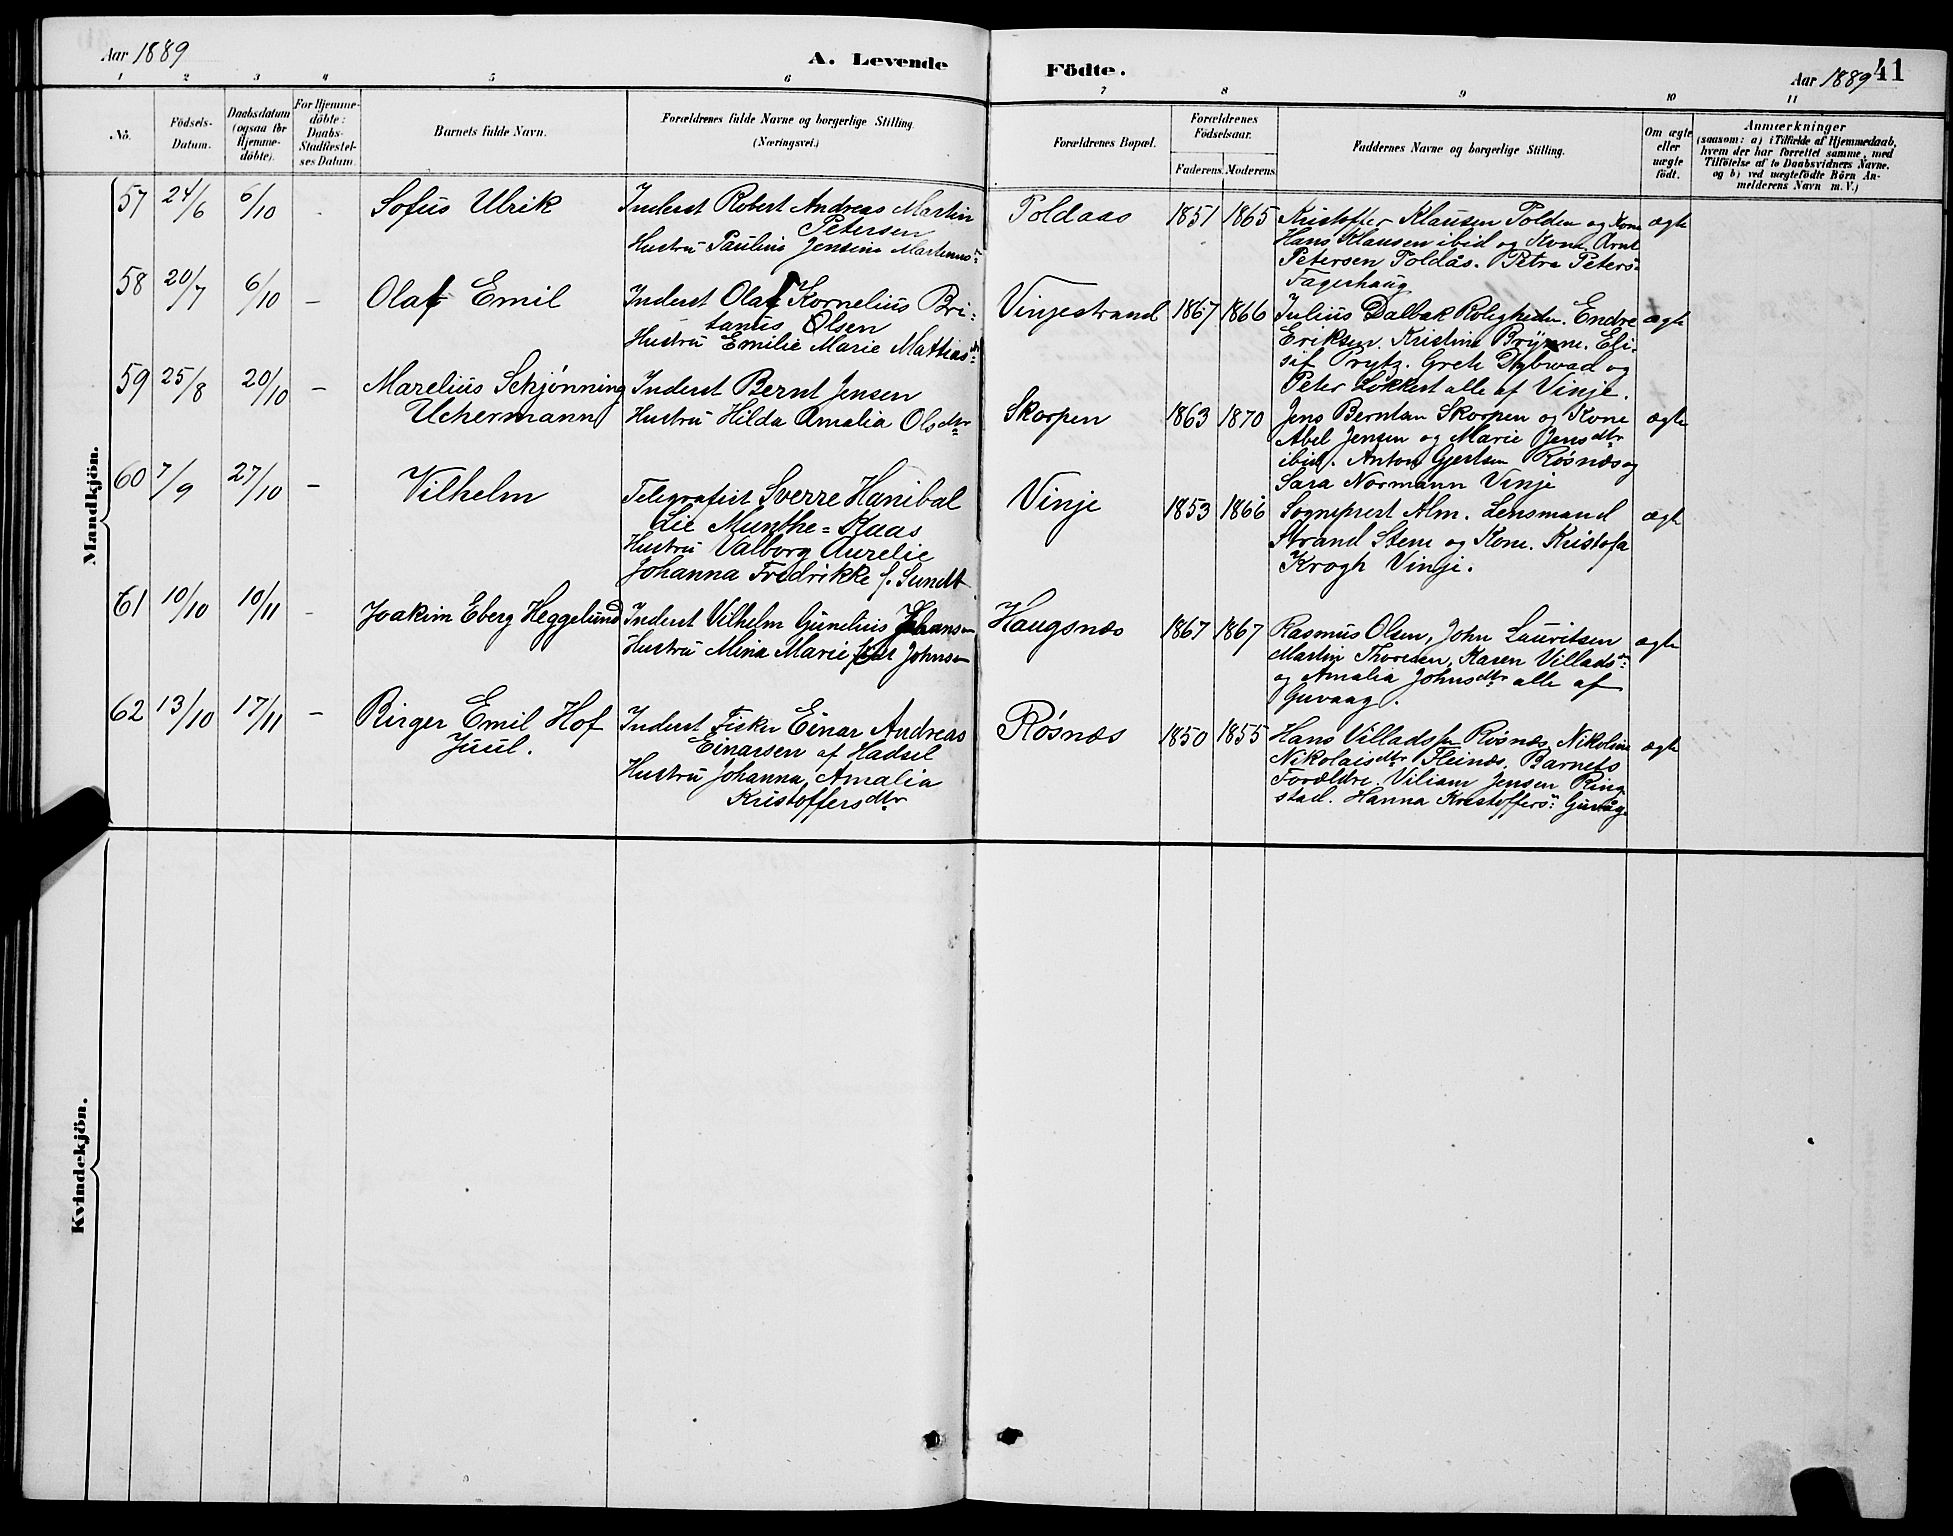 Aar 1889
A. Levende
Födte.
Aar 1889
41
1 2 3 4 5 6 7 8 9 10 11
No.
Födsels-
Datum.
Daabsdatum
(ogsaa for
Hjemme-
döbte).
For Hjemme-
döbte:
Daabs-
Stadfæstel-
ses Datum.
Barnets fulde Navn.
Forældrenes fulde Navne og borgerlige Stilling.
(Næringsvei.)
Forældrenes Bopæl.
Forældrenes
Födselsaar.
Faderens. Moderens.
Faddernes Navne og borgerlige Stilling.
Om ægte
eller
uægte
födt.
Anmærkninger
(saasom: a) i Tilfælde af Hjemmedaab,
hvem der har forrettet samme, med
Tilföielse af to Daabsvidners Navne.
og b) ved uægtefödte Börn An-
melderens Navn m. V.)
Mandkjön.
57 24/6 6/10 - Sofus Ulrik
Inderst Robert Andreas Martin
Petersen
Hustru Paulius Jensine Martinus
Poldaas 1851 1865
Kristoffer Klausen Polden og Kone
Hans Klausen ibid og Kone. Arnt
Petersen Poldås. Petra Peters
Fagerhaug
ægte
58 20/7 6/10 - Olaf Emil
Inderst Olaf Kornelius Bri-
tanus Olsen
Hustru Emilie Marie Mattiasdtr
Vinjestrand 1867 1866
Julius Dalbak Roligheden. Endre
Eriksen. Kristine Brynne. Eli-
sif Prytz. Grete Dybwad og
Peter Lökkert alle af Vinje.
ægte
59 25/8 20/10 - Marelius Schjønning
Uchermann
Inderst Bernt Jensen
Hustru Hilda Amalia Olsdtr
Skorpen 1863 1870
Jens Berntsen Skorpen og Kone
Abel Jensen og Marie Jensdtr
ibid. Anton Gjertsen Røsnæs og
Sara Normann Vinje
ægte
60 7/9 27/10 - Vilhelm
Telegrafist Sverre Hanibal
Lie Munthe=Kaas
Hustru Valborg Aurelie
Johanna Fredrikke f. Sundt
Vinje 1853 1866
Sogneprest Alm. Lensmand
Strand Stene og Kone. Kristofa
Krogh Vinje.
ægte
61 10/10 10/11 - Joakim Eberg Heggelund
Inderst Vilhelm Gunelius Johansen
Hustru Mina Marie Johnsen
Haugsnæs 1867 1867
Rasmus Olsen, John Lauritsen
Martin Thoresen, Karen Villads
og Amalia Johnsdtr alle af
Guvaag.
ægte
62 13/10 17/11 - Birger Emil Hof
Juul.
Inderst Fisker Einar Andreas
Einarsen af Hadsel
Hustru Johanna Amalia
Kristoffersdtr
Røsnæs 1850 1855
Hans Villadssen Røsnæs, Nikoline
Nikolaisdtr Fleinæs. Barnets
Forældre. Viliam Jensen Ring-
stad. Hanna Kristoffers Guvåg
ægte
Kvindekjön.